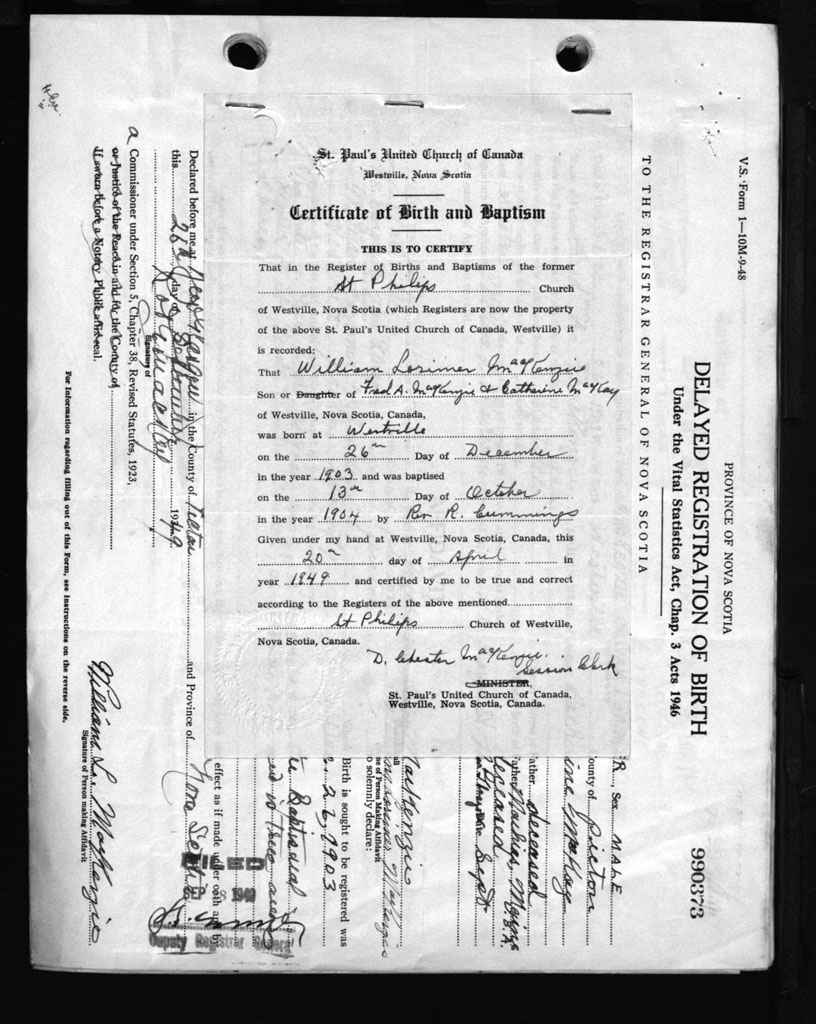 St. Paul's United Church of Canada
Westville, Nova Scotia
Certificate of Birth and Baptism
THIS IS TO CERTIFY
That in the Register of Births and Baptisms of the former
St Philips Church
of Westville, Nova Scotia (which Registers are now the property
of the above St. Paul's United Church of Canada, Westville) it
is recorded:
That William Lorimer MacKenzie
Son or Daughter of Fred A. MacKenzie & Catherine MacKay
of Westville, Nova Scotia, Canada,
was born at Westville
on the 26th Day of December
in the year 1903 and was baptised
on the 13th Day of October
in the year 1904 by Rev R. Cummings
Given under my hand at Westville, Nova Scotia, Canada, this
20th day of April in
year 1949 and certified by me to be true and correct
according to the Registers of the above mentioned
St Philips Church of Westville,
Nova Scotia, Canada.
D. Chester MacKenzie.
Session Clerk
MINISTER,
St. Paul's United Church of Canada,
Westville, Nova Scotia, Canada.
V.S. Form 1—10M-9-48
PROVINCE OF NOVA SCOTIA
DELAYED REGISTRATION OF BIRTH
990373
Under the Vital Statistics Act, Chap. 3 Acts 1946
TO THE REGISTRAR GENERAL OF NOVA SCOTIA
R., Sex MALE
ounty of Pictou
deceased
deceased
Sept
MacKenzie
me of Person Making Affidavit
o solemnly declare:
Birth is sought to be registered was
26, 1903
effect as if made under oath and by
Declared before me at New Glasgow in the County of Pictou and Province of Nova Scotia
this 26th day of September 1949
Signature of
a Commissioner under Section 5, Chapter 38, Revised Statutes, 1923,
or Justice of the Peace in and for the County of
If sworn before a Notary Public affix seal.
William L. MacKenzie
Signature of Person making Affidavit
For information regarding filling out of this Form, see Instructions on the reverse side.
FILED
1949
Deputy Registrar General